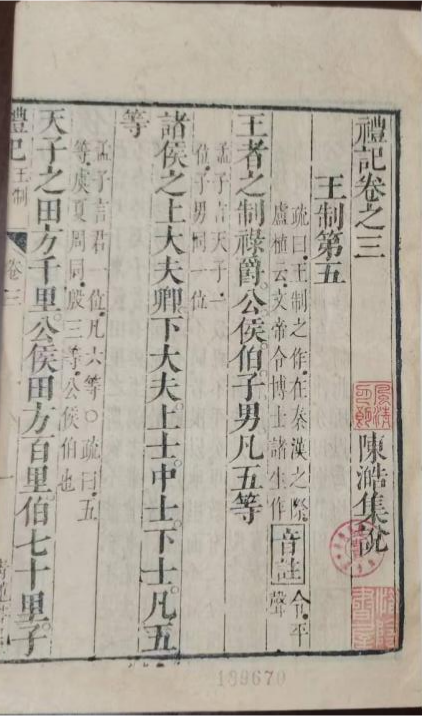 禮記卷之三 陳澔集說
王制第五
疏曰.王制之作.在秦漢之際
盧植云.文帝令博士諸生作
音註
令.平
聲
王者之制祿爵。公侯伯子男凡五等
孟子言天子一
位.子男同一位
諸侯之上大夫卿下大夫。上士。中士。下士。凡五
等
孟子言君一位.凡六等○疏曰.五
等.虞夏周同.殷三等.公侯伯也
天子之田方千里。公侯田方百里伯七十里。子
禮記 王制 卷三
189670